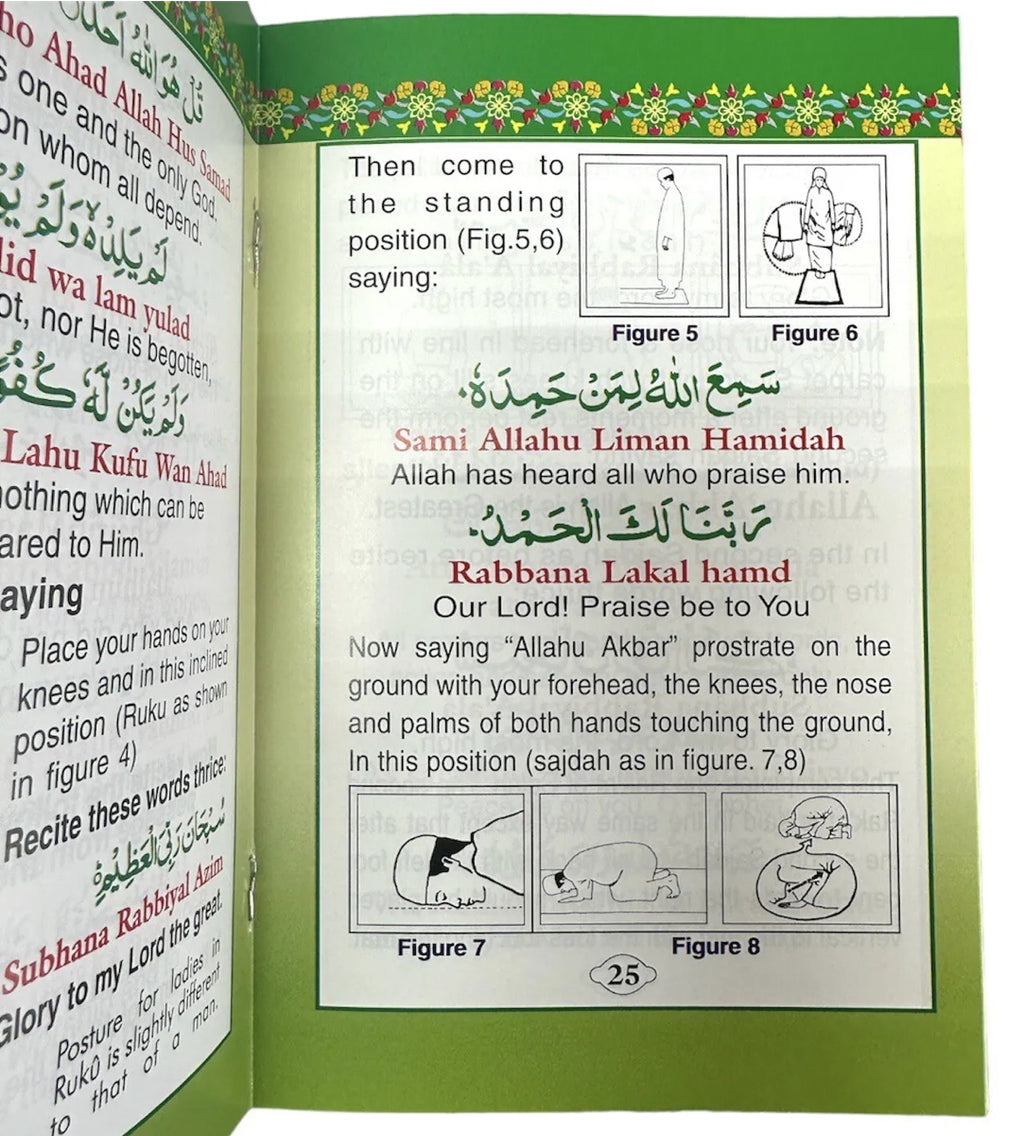 قُلْ هُوَ اللهُ أَحَدٌ
Ahad Allah Hus Samad
one and the only God,
on whom all depend.
لَمْ يَلِدْ وَلَمْ
wa lam yulad
nor He is begotten,
وَلَمْ يَكُنْ لَّهٗ
Lahu Kufu Wan Ahad
which can be
to Him.
Place your hands on your
knees and in this inclined
position (Ruku as shown
in figure 4)
Recite these words thrice:
سُبْحَانَ رَبِّيَ الْعَظِيْمِ
Subhana Rabbiyal Azim
Glory to my Lord the great.
Posture for ladies in
Rukû is slightly different
to that of a man.
Then come to
the standing
position (Fig.5,6)
saying:
Figure 5
Figure 6
سَمِعَ اللهُ لِمَنْ حَمِدَهٗ۔
Sami Allahu Liman Hamidah
Allah has heard all who praise him.
رَبَّنَا لَكَ الْحَمْدُ۔
Rabbana Lakal hamd
Our Lord! Praise be to You
Now saying “Allahu Akbar” prostrate on the
ground with your forehead, the knees, the nose
and palms of both hands touching the ground,
In this position (sajdah as in figure. 7,8)
Figure 7
Figure 8
25